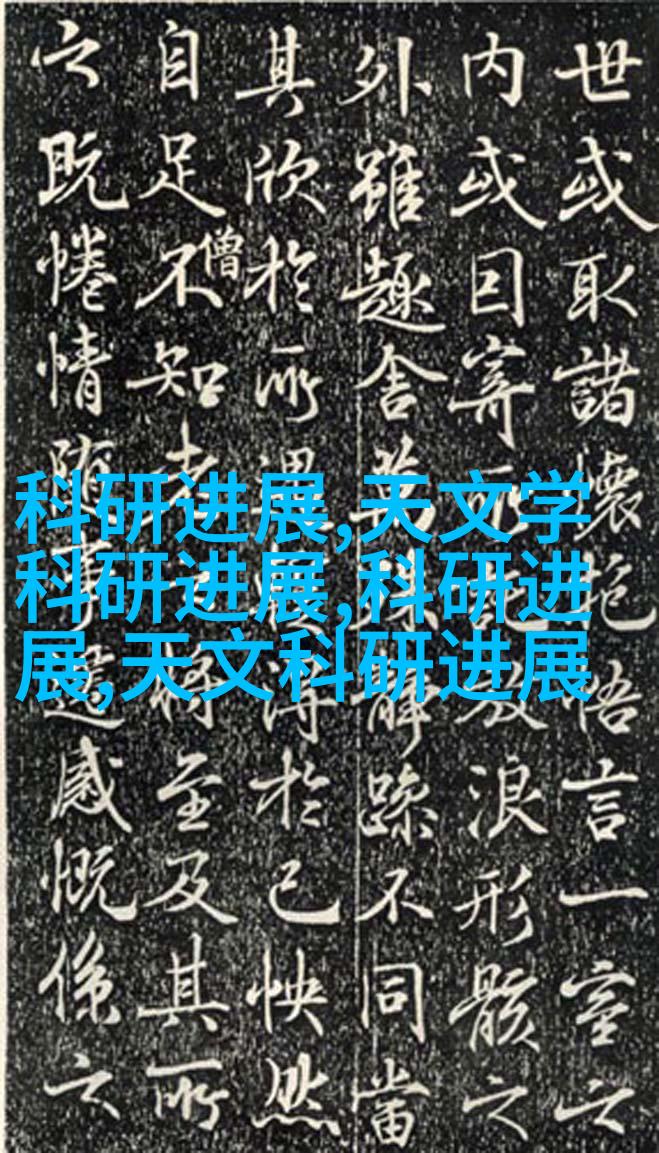 世或取諸懷抱悟言一室之
内或因寄所託放浪形骸之
外雖趣舍萬殊静躁不同當
其欣於所遇得於己怏然
自足不知老將至及其所
僧
之既惓情随事遷感慨係之
科研进展,天文学
科研进展,科研进
展,天文科研进展